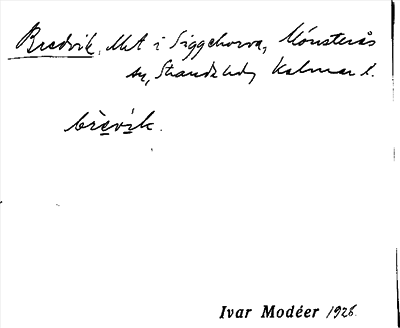 Bredvik, llht i Siggehorva, Mönsterås
sn, Strands hd, Kalmar l.
brèvìk.
Ivar Modéer 1926.